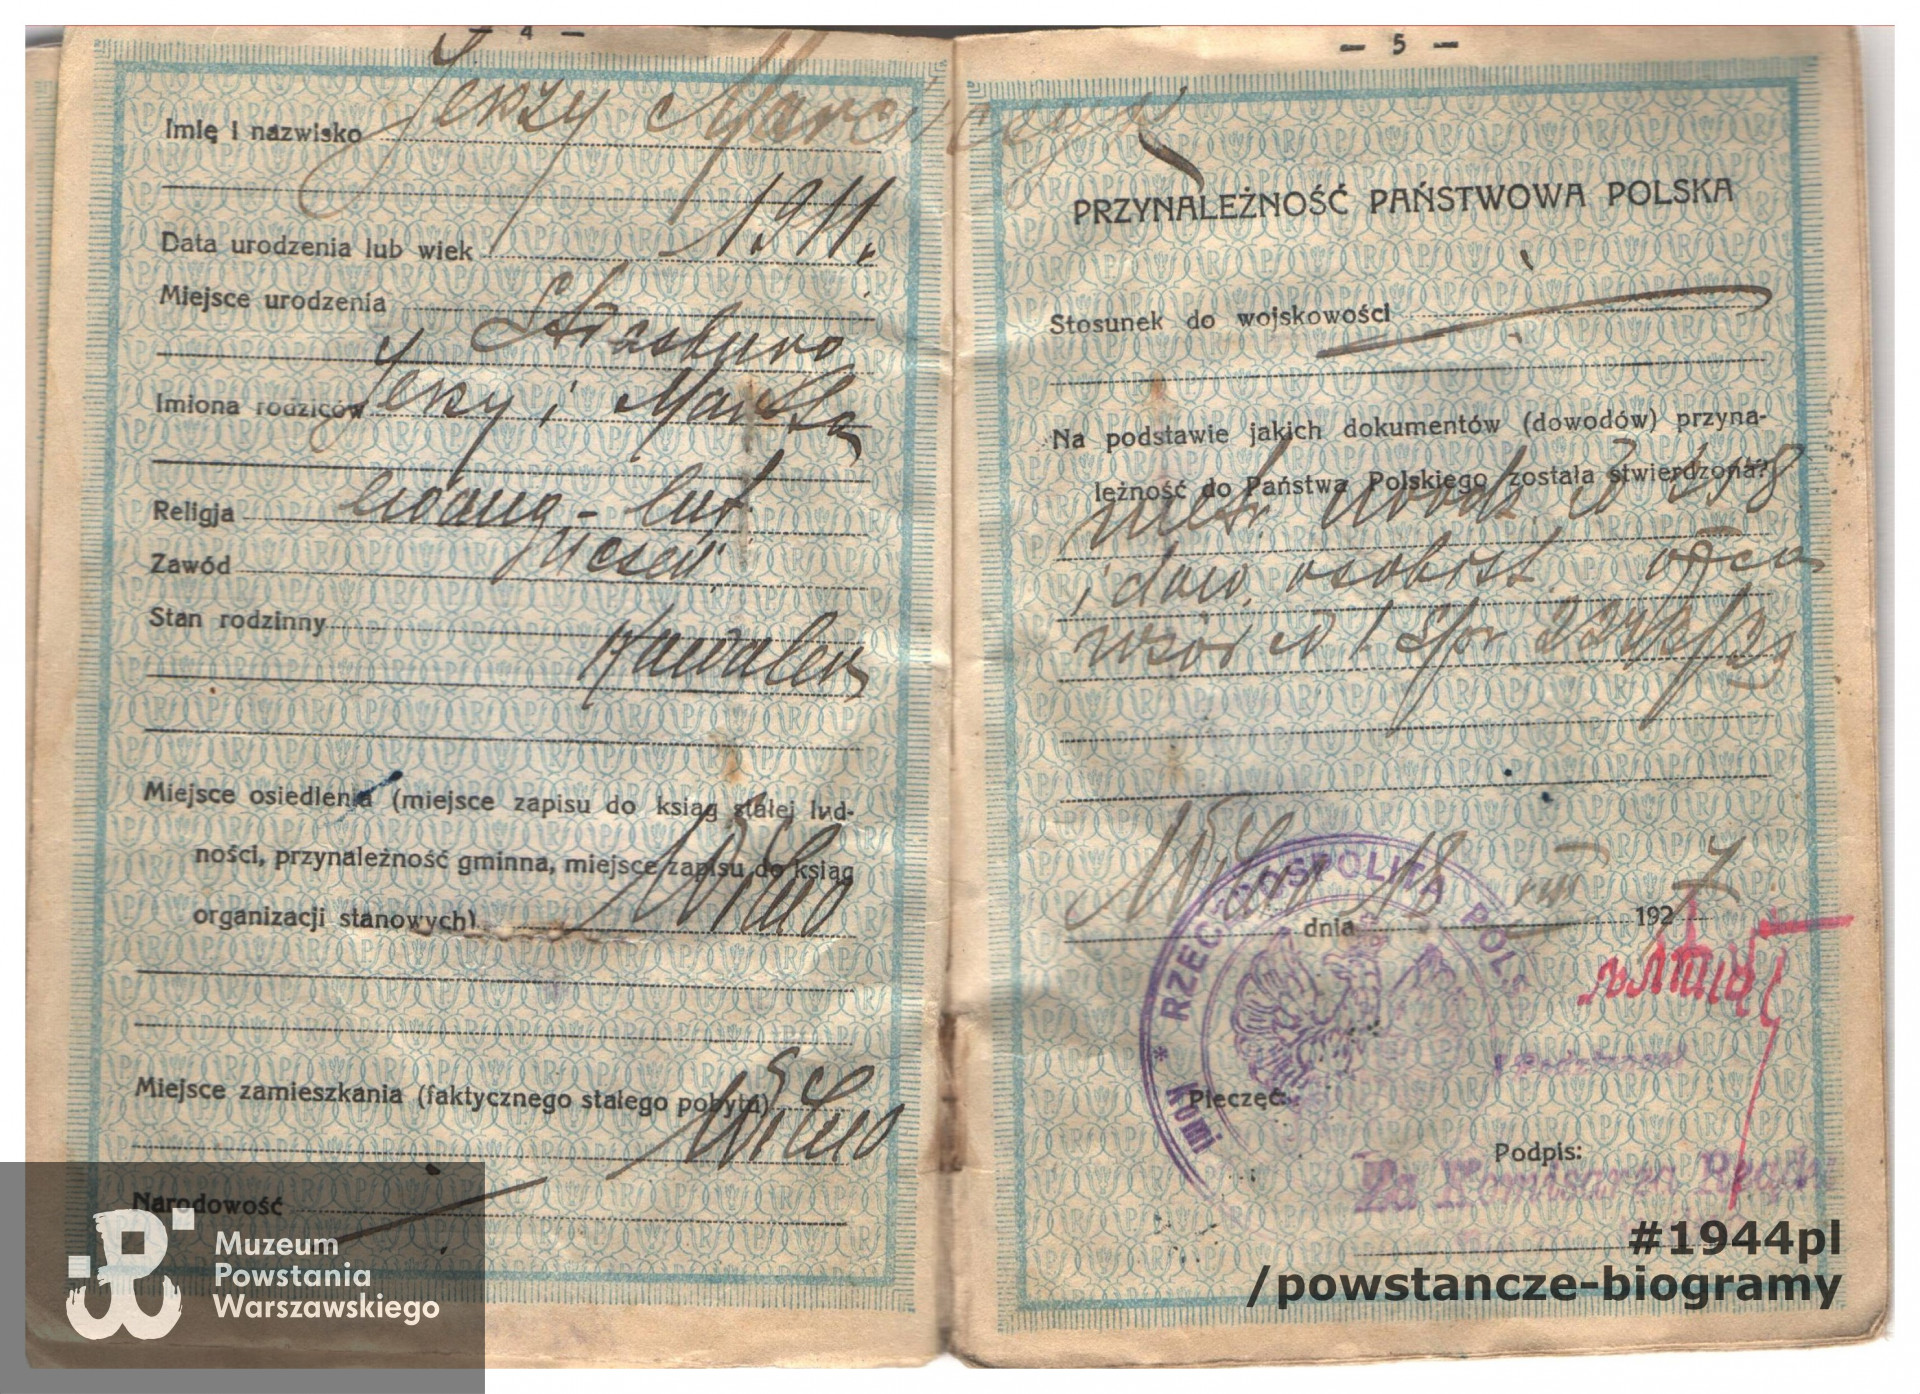 4 —
Imię i nazwisko Jerzy Marcińczyk
Data urodzenia lub wiek 1911.
Miejsce urodzenia
Strasburg
Imiona rodziców Jerzy i Marta
Religja ewang-lut.
Zawód uczeń
Stan rodzinny
Kawaler
Miejsce osiedlenia (miejsce zapisu do ksiąg stałej lud-
ności, przynależność gminna, miejsce zapisu do ksiąg
organizacji stanowych) Wilno
Miejsce zamieszkania (faktycznego stałego pobytu)
Wilno
Narodowość
Muzeum
Powstania
Warszawskiego
— 5 —
PRZYNALEŻNOŚĆ PAŃSTWOWA POLSKA
Stosunek do wojskowości
Na podstawie jakich dokumentów (dowodów) przyna-
leżność do Państwa Polskiego została stwierdzona?
metr. urodz. N 258
i dow. osobist. ojca
wzór N 1
Wilno dnia 18 VIII 1927
RZECZPOSPOLITA POLS
Pieczęć:
Podpis:
Za Komisarza Rządu
#1944pl
/powstancze-biogramy